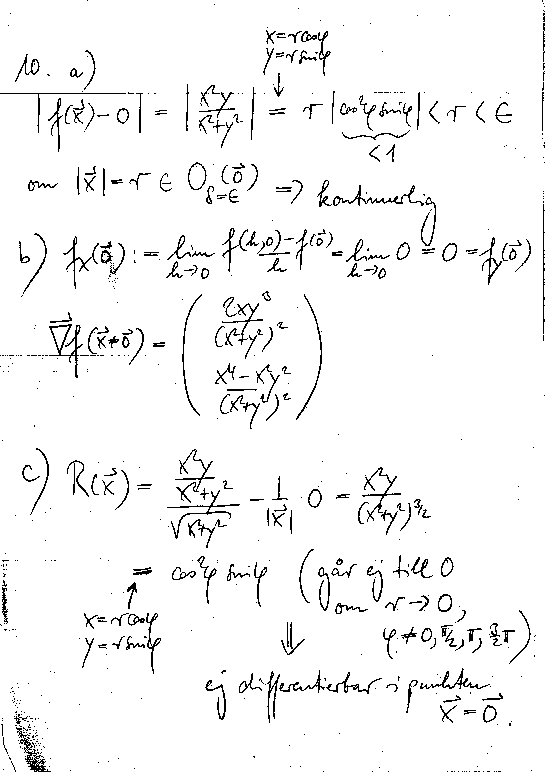 x = r cos φ
y = r sin φ
10. a)
|f(x⃗) − 0| = |x²y / (x²+y²)| = r |cos²φ sin φ| < r < ε
< 1
om |x⃗| = r ∈ O_{δ=ε}(0⃗) ⇒ kontinuerlig
b) f_x(0⃗) := lim_{h→0} (f(h,0) − f(0⃗)) / h = lim_{h→0} 0 = 0 = f_y(0⃗)
∇⃗f(x⃗≠0⃗) = ( 2xy³ / (x²+y²)²
x⁴ − x²y² / (x²+y²)² )
c) R(x⃗) = (x²y / (x²+y²)) / √(x²+y²) − 1/|x⃗| 0 = x²y / (x²+y²)^{3/2}
= cos²φ sin φ (går ej till 0
om r → 0,
x = r cos φ
y = r sin φ
φ ≠ 0, π/2, π, 3/2 π)
⇓
ej differentierbar i punkten
x⃗ = 0⃗.